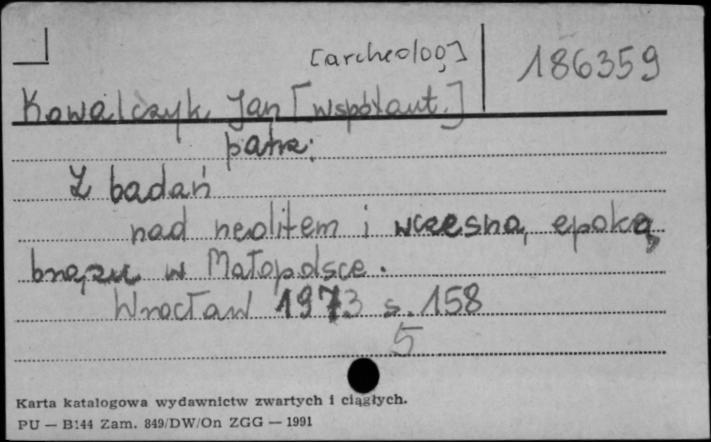 [archeolog]
186359
Kowalczyk Jan [współaut.]
patrz:
Z badań
nad neolitem i wczesną epoką
brązu w Małopolsce.
Wrocław 1973 s. 158
5
Karta katalogowa wydawnictw zwartych i ciągłych.
PU — B144 Zam. 849/DW/On ZGG — 1991